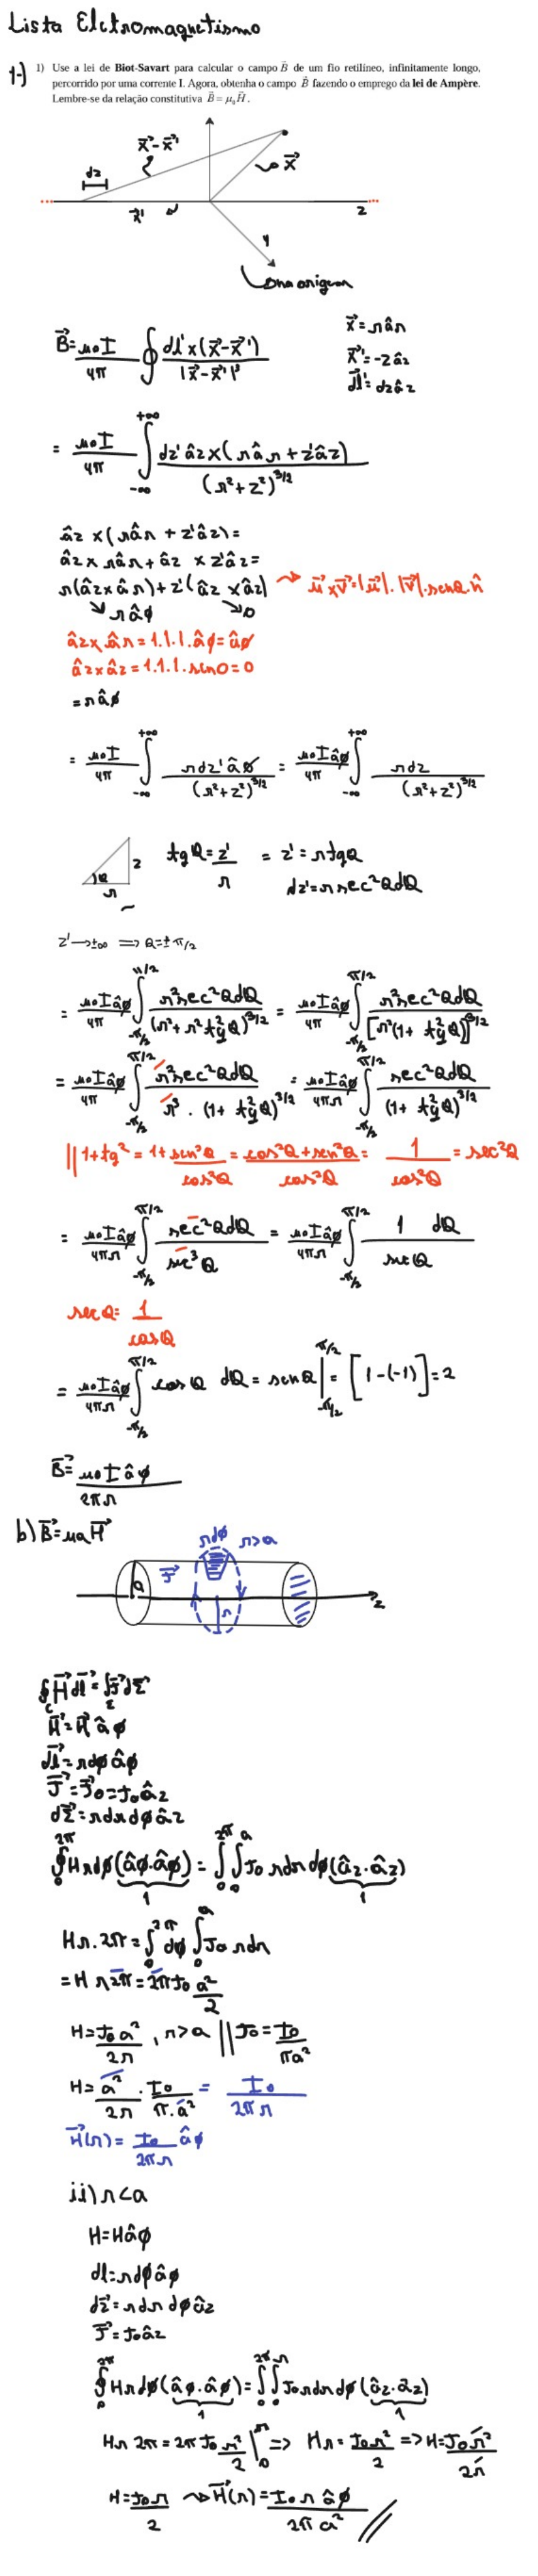 Lista Eletromagnetismo
1-) 1) Use a lei de Biot-Savart para calcular o campo B⃗ de um fio retilíneo, infinitamente longo,
percorrido por uma corrente I. Agora, obtenha o campo B⃗ fazendo o emprego da lei de Ampère.
Lembre-se da relação constitutiva B⃗ = μ₀H⃗.
x⃗-x⃗'
dz
x⃗
x⃗'
z
y
na origem
B⃗ = μ₀I/4π ∮ dl'×(x⃗-x⃗')/|x⃗-x⃗'|³
x⃗ = r âr
x⃗' = -z âz
dl⃗' = dz âz
= μ₀I/4π ∫_{-∞}^{+∞} dz' âz × (r âr + z' âz)/(r²+z²)^{3/2}
âz × (r âr + z' âz) =
âz × r âr + âz × z' âz =
r(âz × âr) + z'(âz × âz) → u⃗×v⃗ = |u⃗|.|v⃗|.senθ.n̂
r âφ 0
âz × âr = 1.1.1.âφ = âφ
âz × âz = 1.1.1.sen0 = 0
= r âφ
= μ₀I/4π ∫_{-∞}^{+∞} r dz' âφ/(r²+z²)^{3/2} = μ₀I âφ/4π ∫_{-∞}^{+∞} r dz/(r²+z²)^{3/2}
θ z r
tgθ = z'/r = z' = r tgθ
dz' = r sec²θ dθ
z' → ±∞ ⇒ θ = ±π/2
= μ₀I âφ/4π ∫_{-π/2}^{π/2} r² sec²θ dθ/(r² + r² tg²θ)^{3/2} = μ₀I âφ/4π ∫_{-π/2}^{π/2} r² sec²θ dθ/[r²(1 + tg²θ)]^{3/2}
= μ₀I âφ/4π ∫_{-π/2}^{π/2} r² sec²θ dθ/r³.(1 + tg²θ)^{3/2} = μ₀I âφ/4πr ∫_{-π/2}^{π/2} sec²θ dθ/(1 + tg²θ)^{3/2}
|| 1+tg² = 1 + sen²θ/cos²θ = cos²θ+sen²θ/cos²θ = 1/cos²θ = sec²θ
= μ₀I âφ/4πr ∫_{-π/2}^{π/2} sec²θ dθ/sec³θ = μ₀I âφ/4πr ∫_{-π/2}^{π/2} 1 dθ/secθ
secθ = 1/cosθ
= μ₀I âφ/4πr ∫_{-π/2}^{π/2} cosθ dθ = senθ |_{-π/2}^{π/2} = [1-(-1)] = 2
B⃗ = μ₀I âφ/2πr
b) B⃗ = μ₀H⃗
rdφ r>a
J⃗
a
r
z
∮_c H⃗ dl⃗ = ∫_Σ J⃗ dΣ⃗
H⃗ = H⃗ âφ
dl⃗ = r dφ âφ
J⃗ = J⃗₀ = J₀ âz
dΣ⃗ = r dr dφ âz
∮_0^{2π} H r dφ (âφ.âφ) = ∫_0^{2π} ∫_0^a J₀ r dr dφ (âz.âz)
1 1
H r.2π = ∫_0^{2π} dφ ∫_0^a J₀ r dr
= H r 2π = 2π J₀ a²/2
H = J₀ a²/2r , r>a || J₀ = I₀/πa²
H = a²/2r . I₀/π.a² = I₀/2πr
H⃗(r) = I₀/2πr âφ
ii) r<a
H = H âφ
dl = r dφ âφ
dΣ⃗ = r dr dφ âz
J⃗ = J₀ âz
∮_0^{2π} H r dφ (âφ.âφ) = ∫_0^{2π} ∫_0^r J₀ r dr dφ (âz.âz)
1 1
H r 2π = 2π J₀ r²/2 |_0^r ⇒ H r = J₀ r²/2 ⇒ H = J₀ r²/2r
H = J₀ r/2 ⇝ H⃗(r) = I₀ r âφ/2πa² //